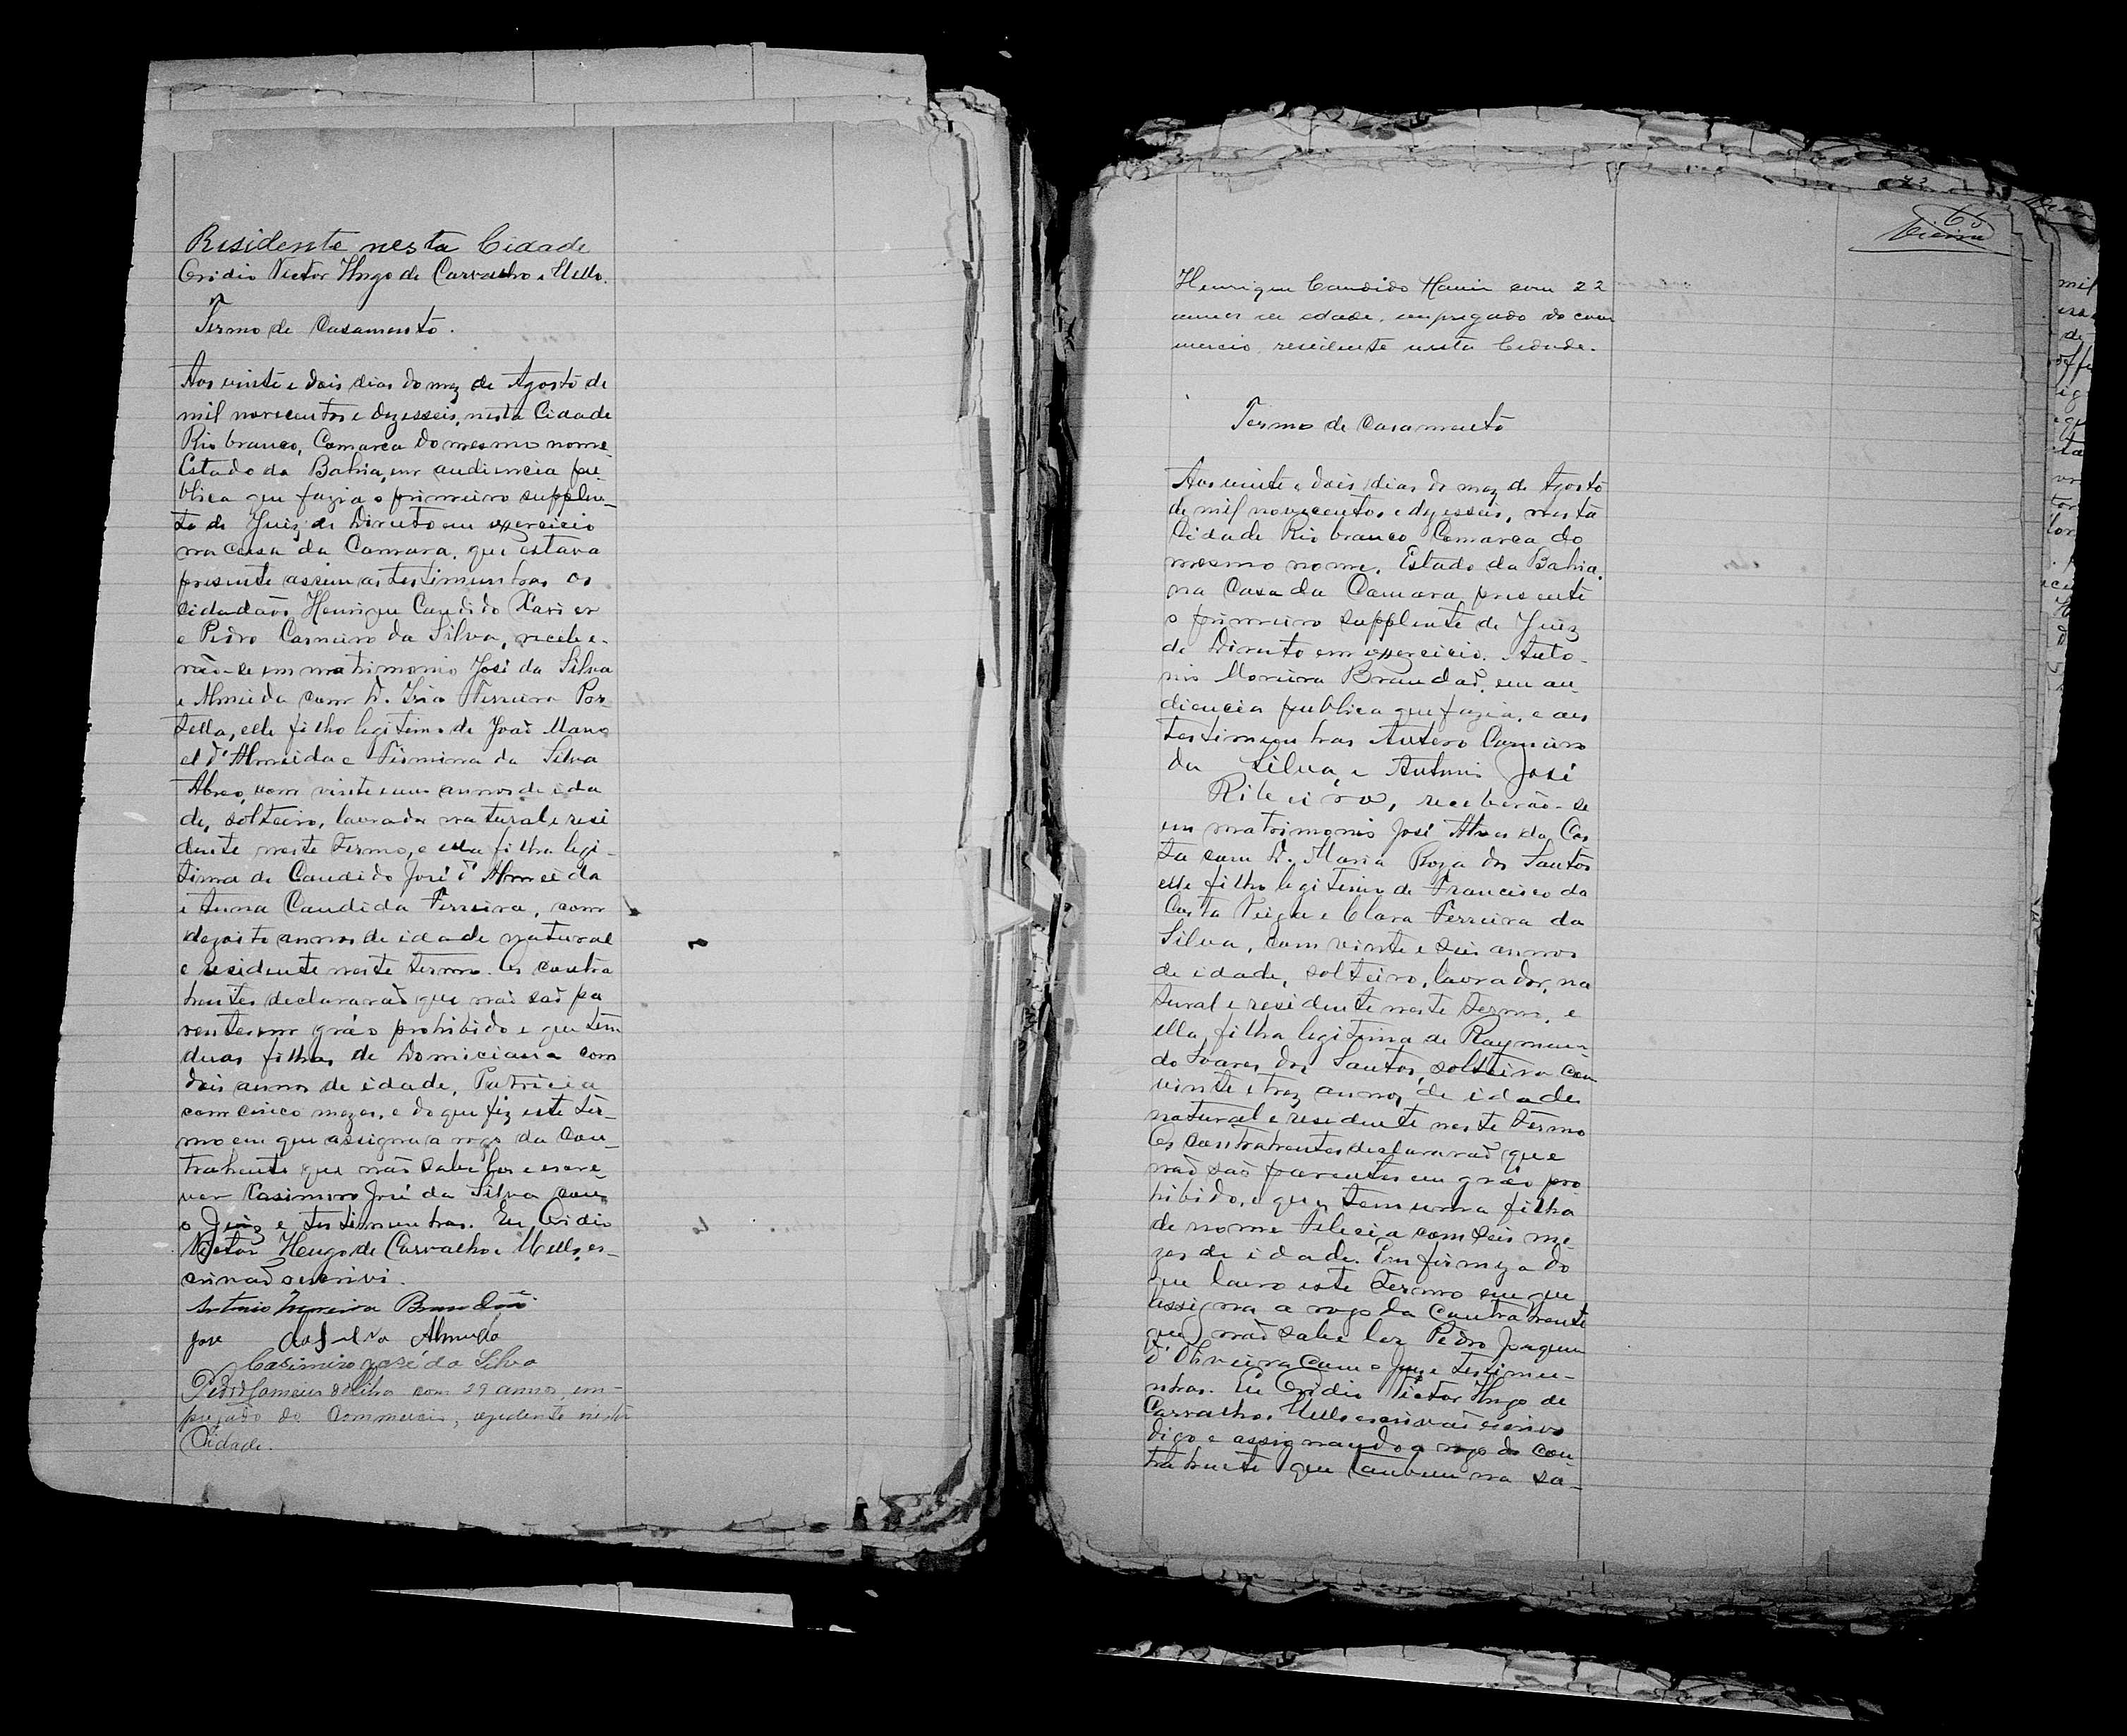 Residente nesta Cidade
Ovidio Victor Hugo de Carvalho e Mello.
Termo de Casamento.
Aos vinte e dois dias do mez de Agosto de
mil novecentos e dezesseis, nesta Cidade
Rio branco, Comarca do mesmo nome
Estado da Bahia, em audiencia pu-
blica que fazia o primeiro supplen-
te de Juiz de Direito em exercicio
na casa da Camara, que estava
presente assim as testimunhas os
cidadãos Henrique Candido Xavier
e Pedro Carneiro da Silva, recebe-
rão-se em matrimonio José da Silva
e Almeida com D. Ferreira Por
tella, elle filho legitimo de João Mano
el d'Almeida e Firmina da Silva
Abreo, com vinte e um annos de ida
de, solteiro, lavrador natural e resi
dente neste termo, e ella filha legi-
tima de Candido José d'Almeida
e Anna Candida Ferreira, com
dezoito annos de idade natural
e residente neste termo. Os contra
hentes declararaõ que naõ saõ pa
rentes em gráo prohibido e que tem
duas filhas de Domiciana com
dois annos de idade, Patricia
com cinco mezes, e do que fiz este ter-
mo em que assigna a rogo da con-
trahente que naõ sabe ler e escre
ver Casimiro José da Silva com
o Juiz e testimunhas. Eu, Ovidio
Victor Hugo de Carvalho e Mello, es-
crivaõ escrivi.
Antonio Moreira Brandão
José da Silva Almeida
Casimiro José da Silva
Pedro Carneiro da Silva com 29 annos, em-
pregado do Commercio, rezidente nesta
Cidade.
Vieira
Henrique Candido Xavier com 22
annos de edade, empregado do com
mercio, residente nesta Cidade.
Termo de Casamento
Aos vinte e dois dias do mez de Agosto
de mil novecentos e dezesseis, nesta
Cidade Rio branco Comarca do
mesmo nome, Estado da Bahia,
na Casa da Camara presente
o primeiro supplente de Juiz
de Direito em exercicio. Anto-
nio Moreira Brandaõ, em au-
diencia publica que fazia, e as
testimunhas Antero Carneiro
da Silva, e Antonio José
Ribeiro, receberão-se
em matrimonio José Alves da Cos
ta com D. Maria Roza dos Santos
elle filho legitimo de Francisco da
Costa Veiga e Clara Ferreira da
Silva, com vinte e seis annos
de idade, solteiro, lavrador, na
tural e residente neste termo, e
ella, filha legitima de Raymun-
do Soares dos Santos, solteira com
vinte e trez annos, de idade
natural e residente neste termo
Os contrahentes declararaõ que
naõ saõ parentes em gráo pro
hibido, e que tem uma filha
de nome Felicia com seis me-
zes de idade. Em firmeza do
que lavro este termo em que
assigna a rogo da Contrahente
que naõ sabe ler Pedro Joaquim
d'Oliveira com o Juiz e testimu-
nhas. Eu Ovidio Victor Hugo de
Carvalho e Mello escrivaõ escrivo
digo e assignando a rogo do con
trahente que tambem na sa-